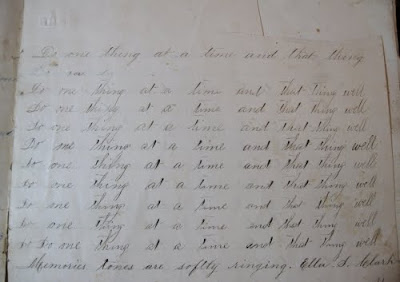 Do one thing at a time and that thing
Do one dy
Do one thing at a time and that ting well
Do one thing at a time and that thing well
Do one thing at a time and that thing well
Do one thing at a time and that thing well
Do one thing at a time and that thing well
Do one thing at a time and that thing well
Do one thing at a time and tha thing well
Do one thing at a time and that thing well
Do one thing at a time and that thing well
Memories tones are softly ringing. Ella S. Clark